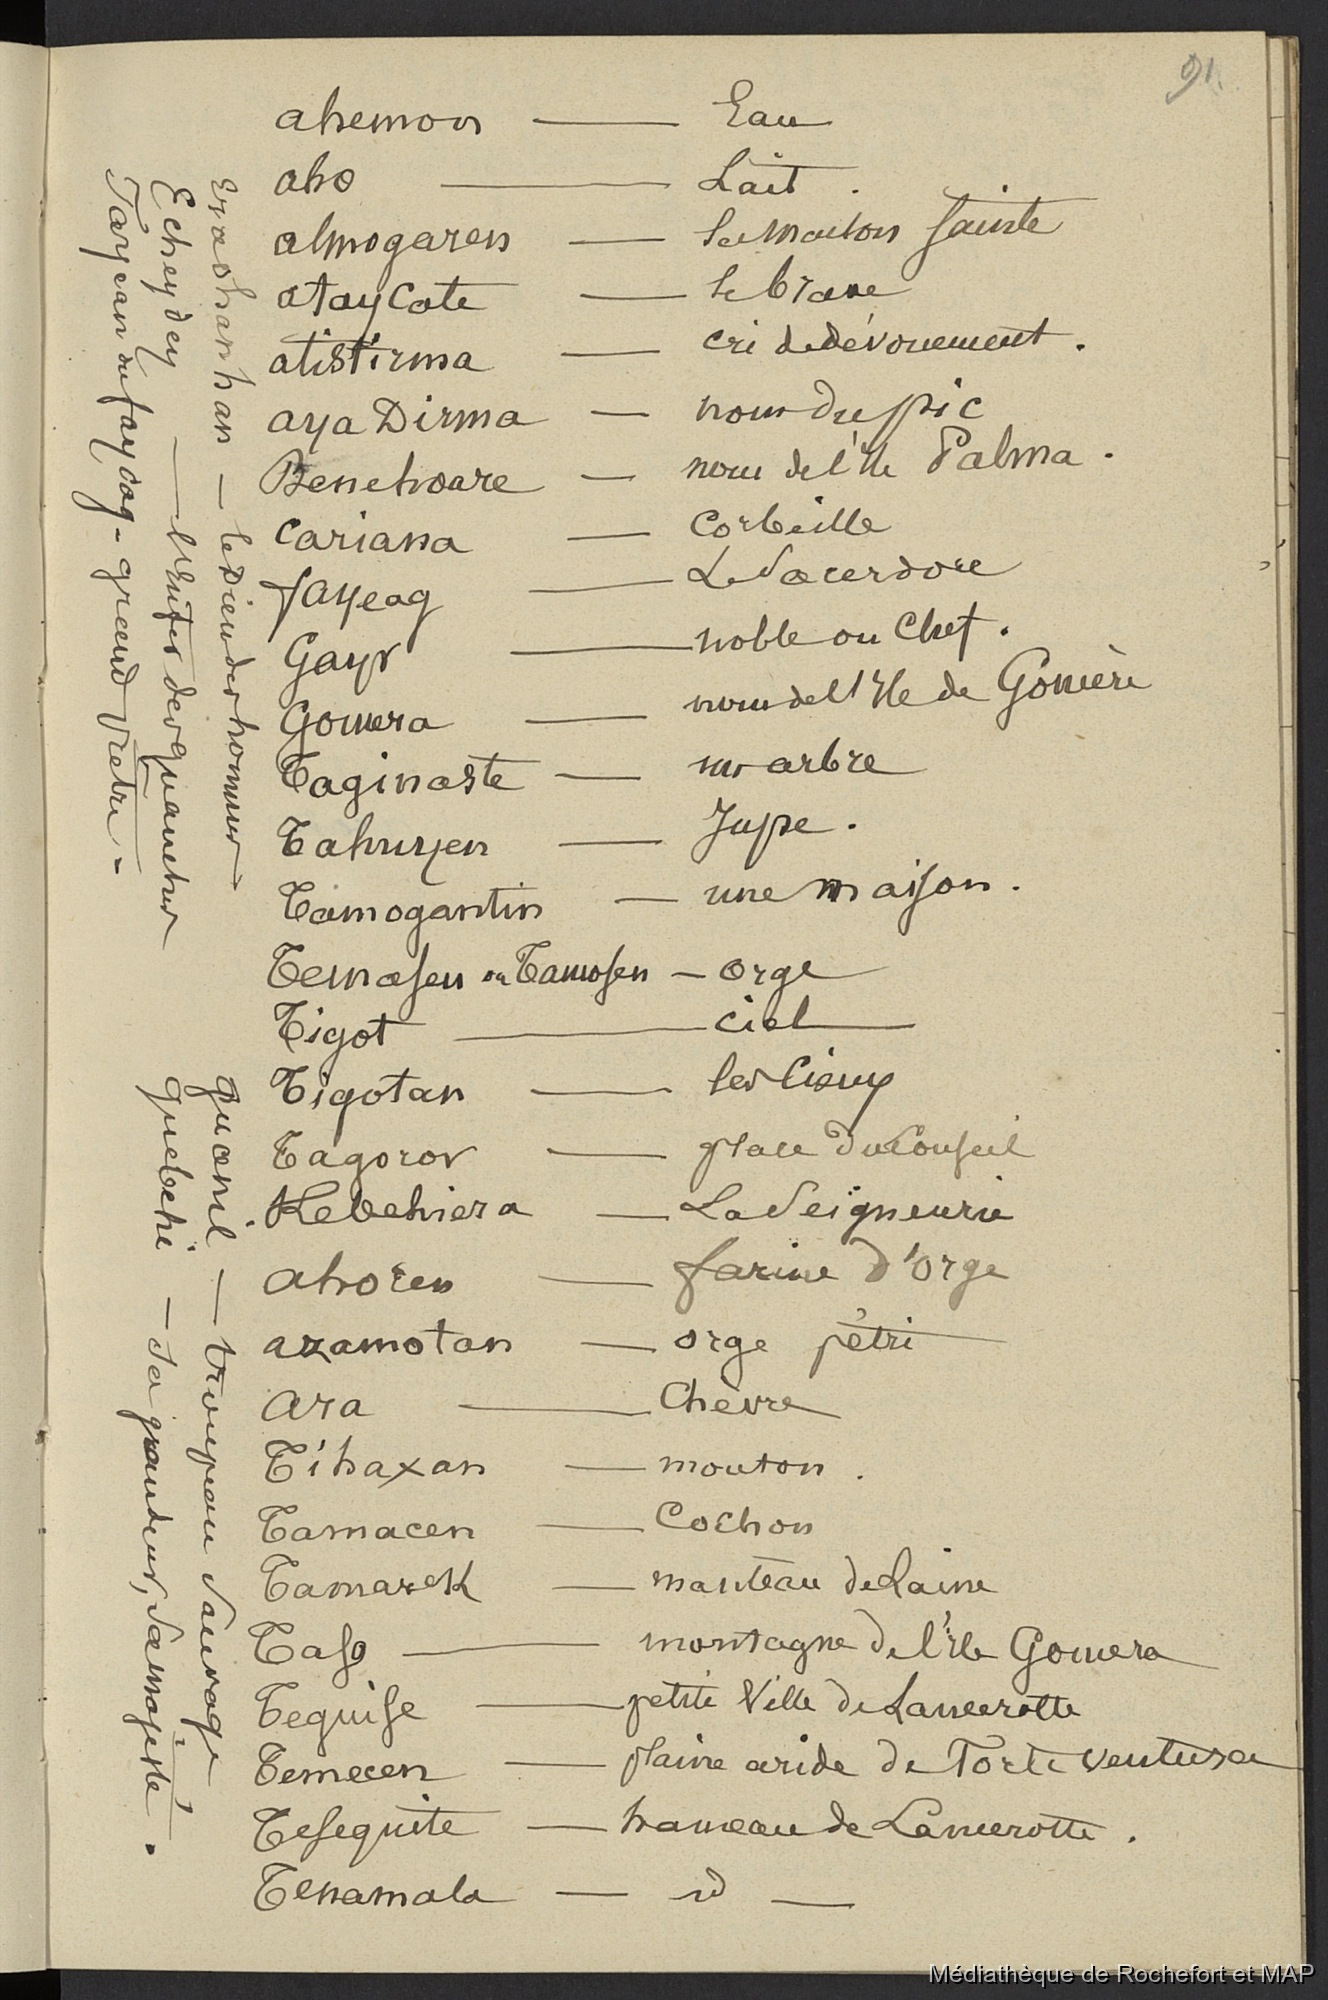 91.
ahemon — Eau
aho — Lait.
almogaren — la maison Sainte
atay Cate — le brave
atistirma — cri de dévouement.
aya Dirma — nom du pic
Benehoare — nom de l'Ile Palma.
Cariana — Corbeille
fayeag — Le Sacerdoce
Gayr — noble ou Chef.
Gomera — nom de l'Ile de Gomère
Taginaste — un arbre
Tahuyen — Jupe.
Tamogantin — une maison.
Temasen ou Tamosen — orge
Tigot — ciel
Tigotan — les Cieux
Tagoror — place du Conseil
Kebehiera — La Seigneurie
ahoren — farine d'orge
azamotan — orge pétri
Ara — Chèvre
Tihaxan — mouton.
Tamacen — Cochon
Tamarek — manteau de Laine
Taso — montagne de l'Ile Gomera
Teguise — petite Ville de Lancerotte
Temecen — plaine aride de Forte ventura
Teseguite — hameau de Lancerotte.
Tenamala — id —
Eraohanhan — le Dieu des hommes
Echeydey — l'Enfer des guanches
Faycan du faycag - grand Prêtre. -
guanil — troupeau Sauvage
quebehi — Sa grandeur, Sa majesté.
Médiathèque de Rochefort et MAP